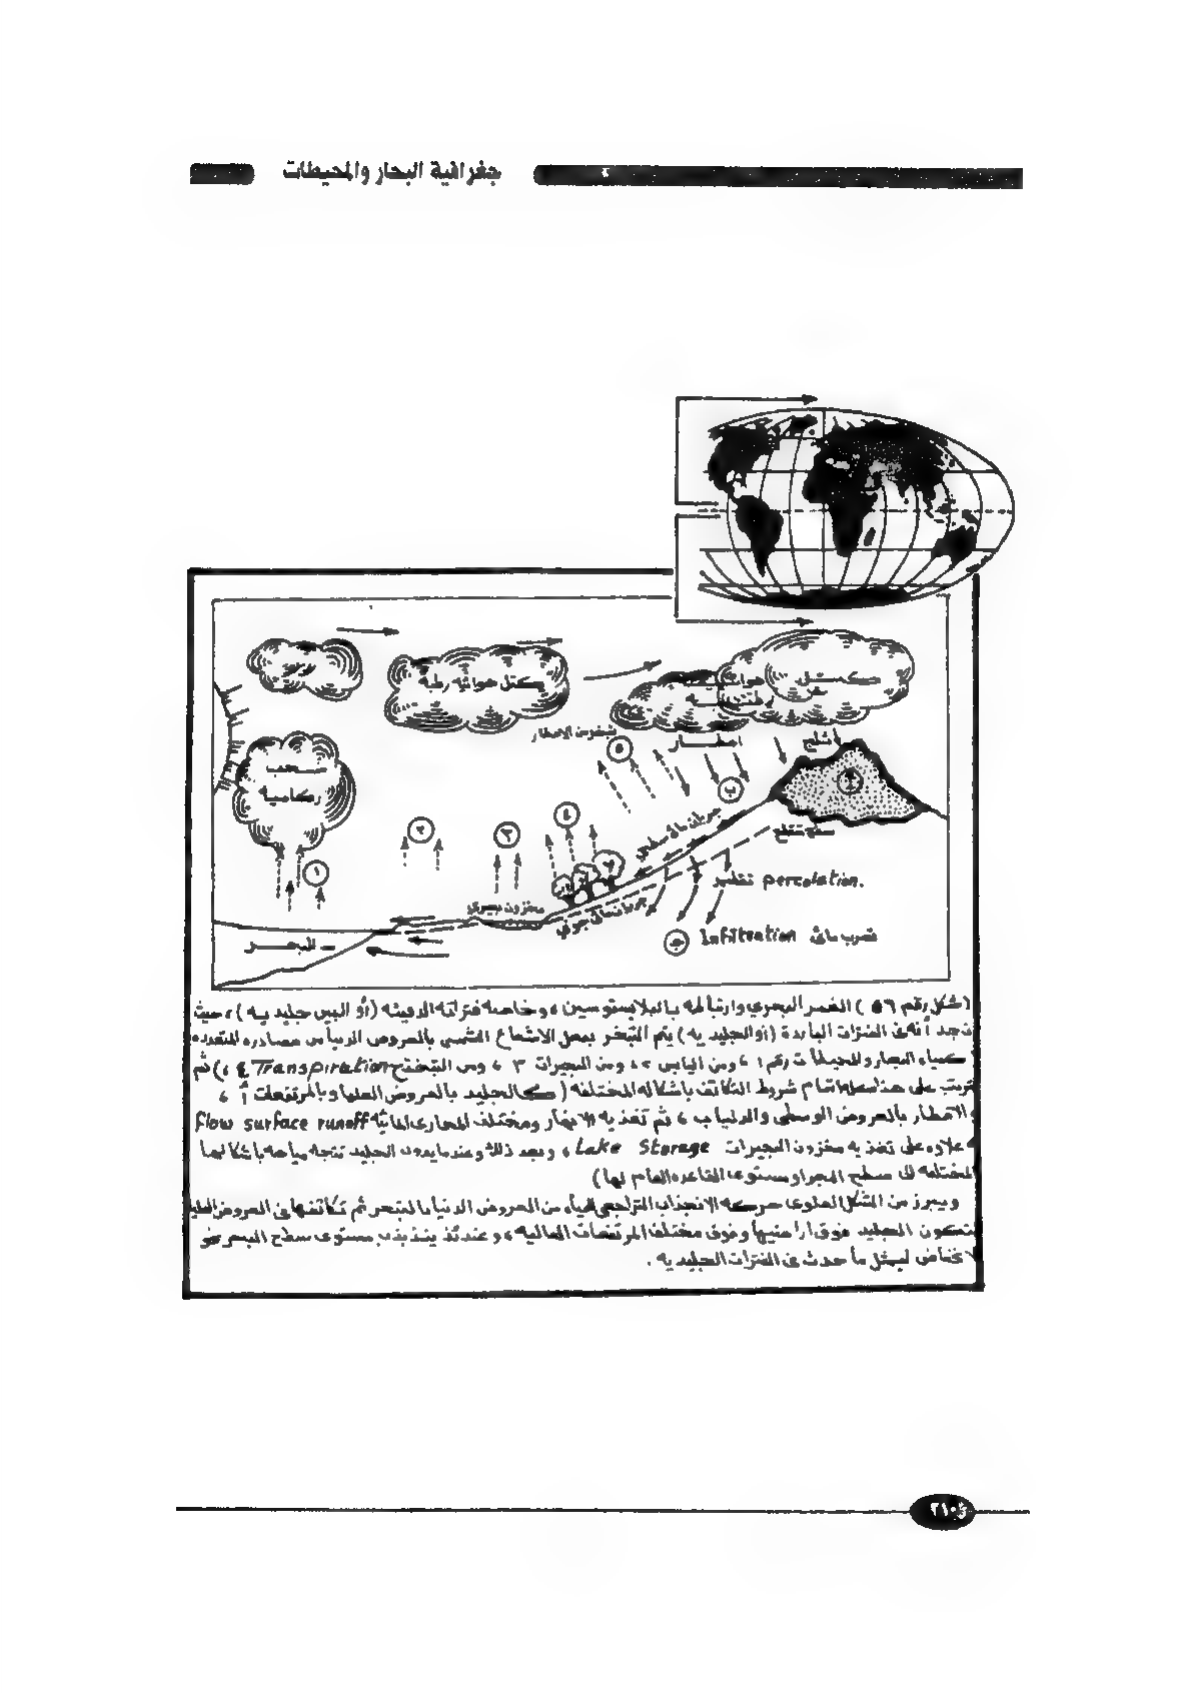 جغرافية البحار والمحيطات
كتل هوائية رطبة
كتل هوائية رطبة
تبخر من الامطار
٥
امطار
ثلج
سحب
ركامية
ب
أ
٤
جريان مائي سطحي
٢
٣
سطح متثلج
١
تقطير percolation.
مخزون بحيري
جريان مائي جوفي
ج Infiltration تسرب مائي
البحر
(شكل رقم ٥٦) الغمر البحري وارتباطه بالبلايستوسين، وخاصة فتراته الدفيئه (أو البين جليديه)، حيث
نجد أنه في الفترات الباردة (أو الجليديه) يتم التبخر بفعل الاشعاع الشمسي بالعروض الدنيا من مصادره المتعدده
كمياه البحار والمحيطات رقم ١، ومن اليابس ٢، ومن البحيرات ٣، ومن التبخنتح Transpiration ٤،) ثم
يترتب على هذا اتمام شروط التكاثف بأشكاله المختلفه (كالجليد بالعروض العليا وبالمرتفعات أ،
والامطار بالعروض الوسطى والدنيا ب، ثم تغذيه الانهار ومختلف المجارى المائيه Flow surface runoff
علاوه على تغذيه مخزون البحيرات Lake Storage، وبعد ذلك وعندما يذوب الجليد تتجه مياهه بأشكالها
المختلفه الى سطح البحر او مستوى القاعده العام لها)
ويبرز من الشكل العلوى حركه الانجذاب التراجعي للمياه من العروض الدنيا بالتبخر ثم تكاثفها في العروض العليا
فيتكون الجليد فوق أراضيها وفوق مختلف المرتفعات العاليه، وعندئذ يتذبذب مستوى سطح البحر نحو
الانخفاض ليمثل ما حدث في الفترات الجليديه.
٢١٠